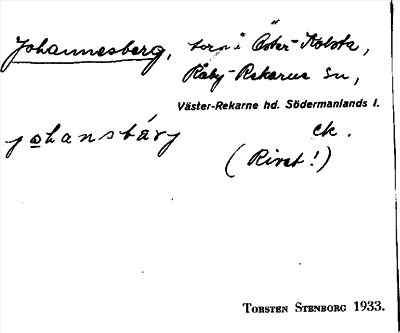 Johannesberg, torp i Öster-Kolsta,
Råby-Rekarne sn,
Väster-Rekarne hd. Södermanlands l.
johansbärj ek.
(Rivet!)
TORSTEN STENBORG 1933.